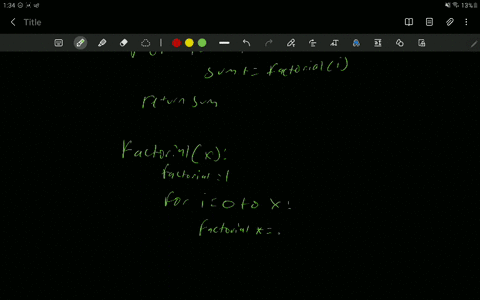 1:34
13%
Title
sum += factorial(i)
return sum
Factorial(x):
factorial = 1
for i=0 to x:
factorial *= .